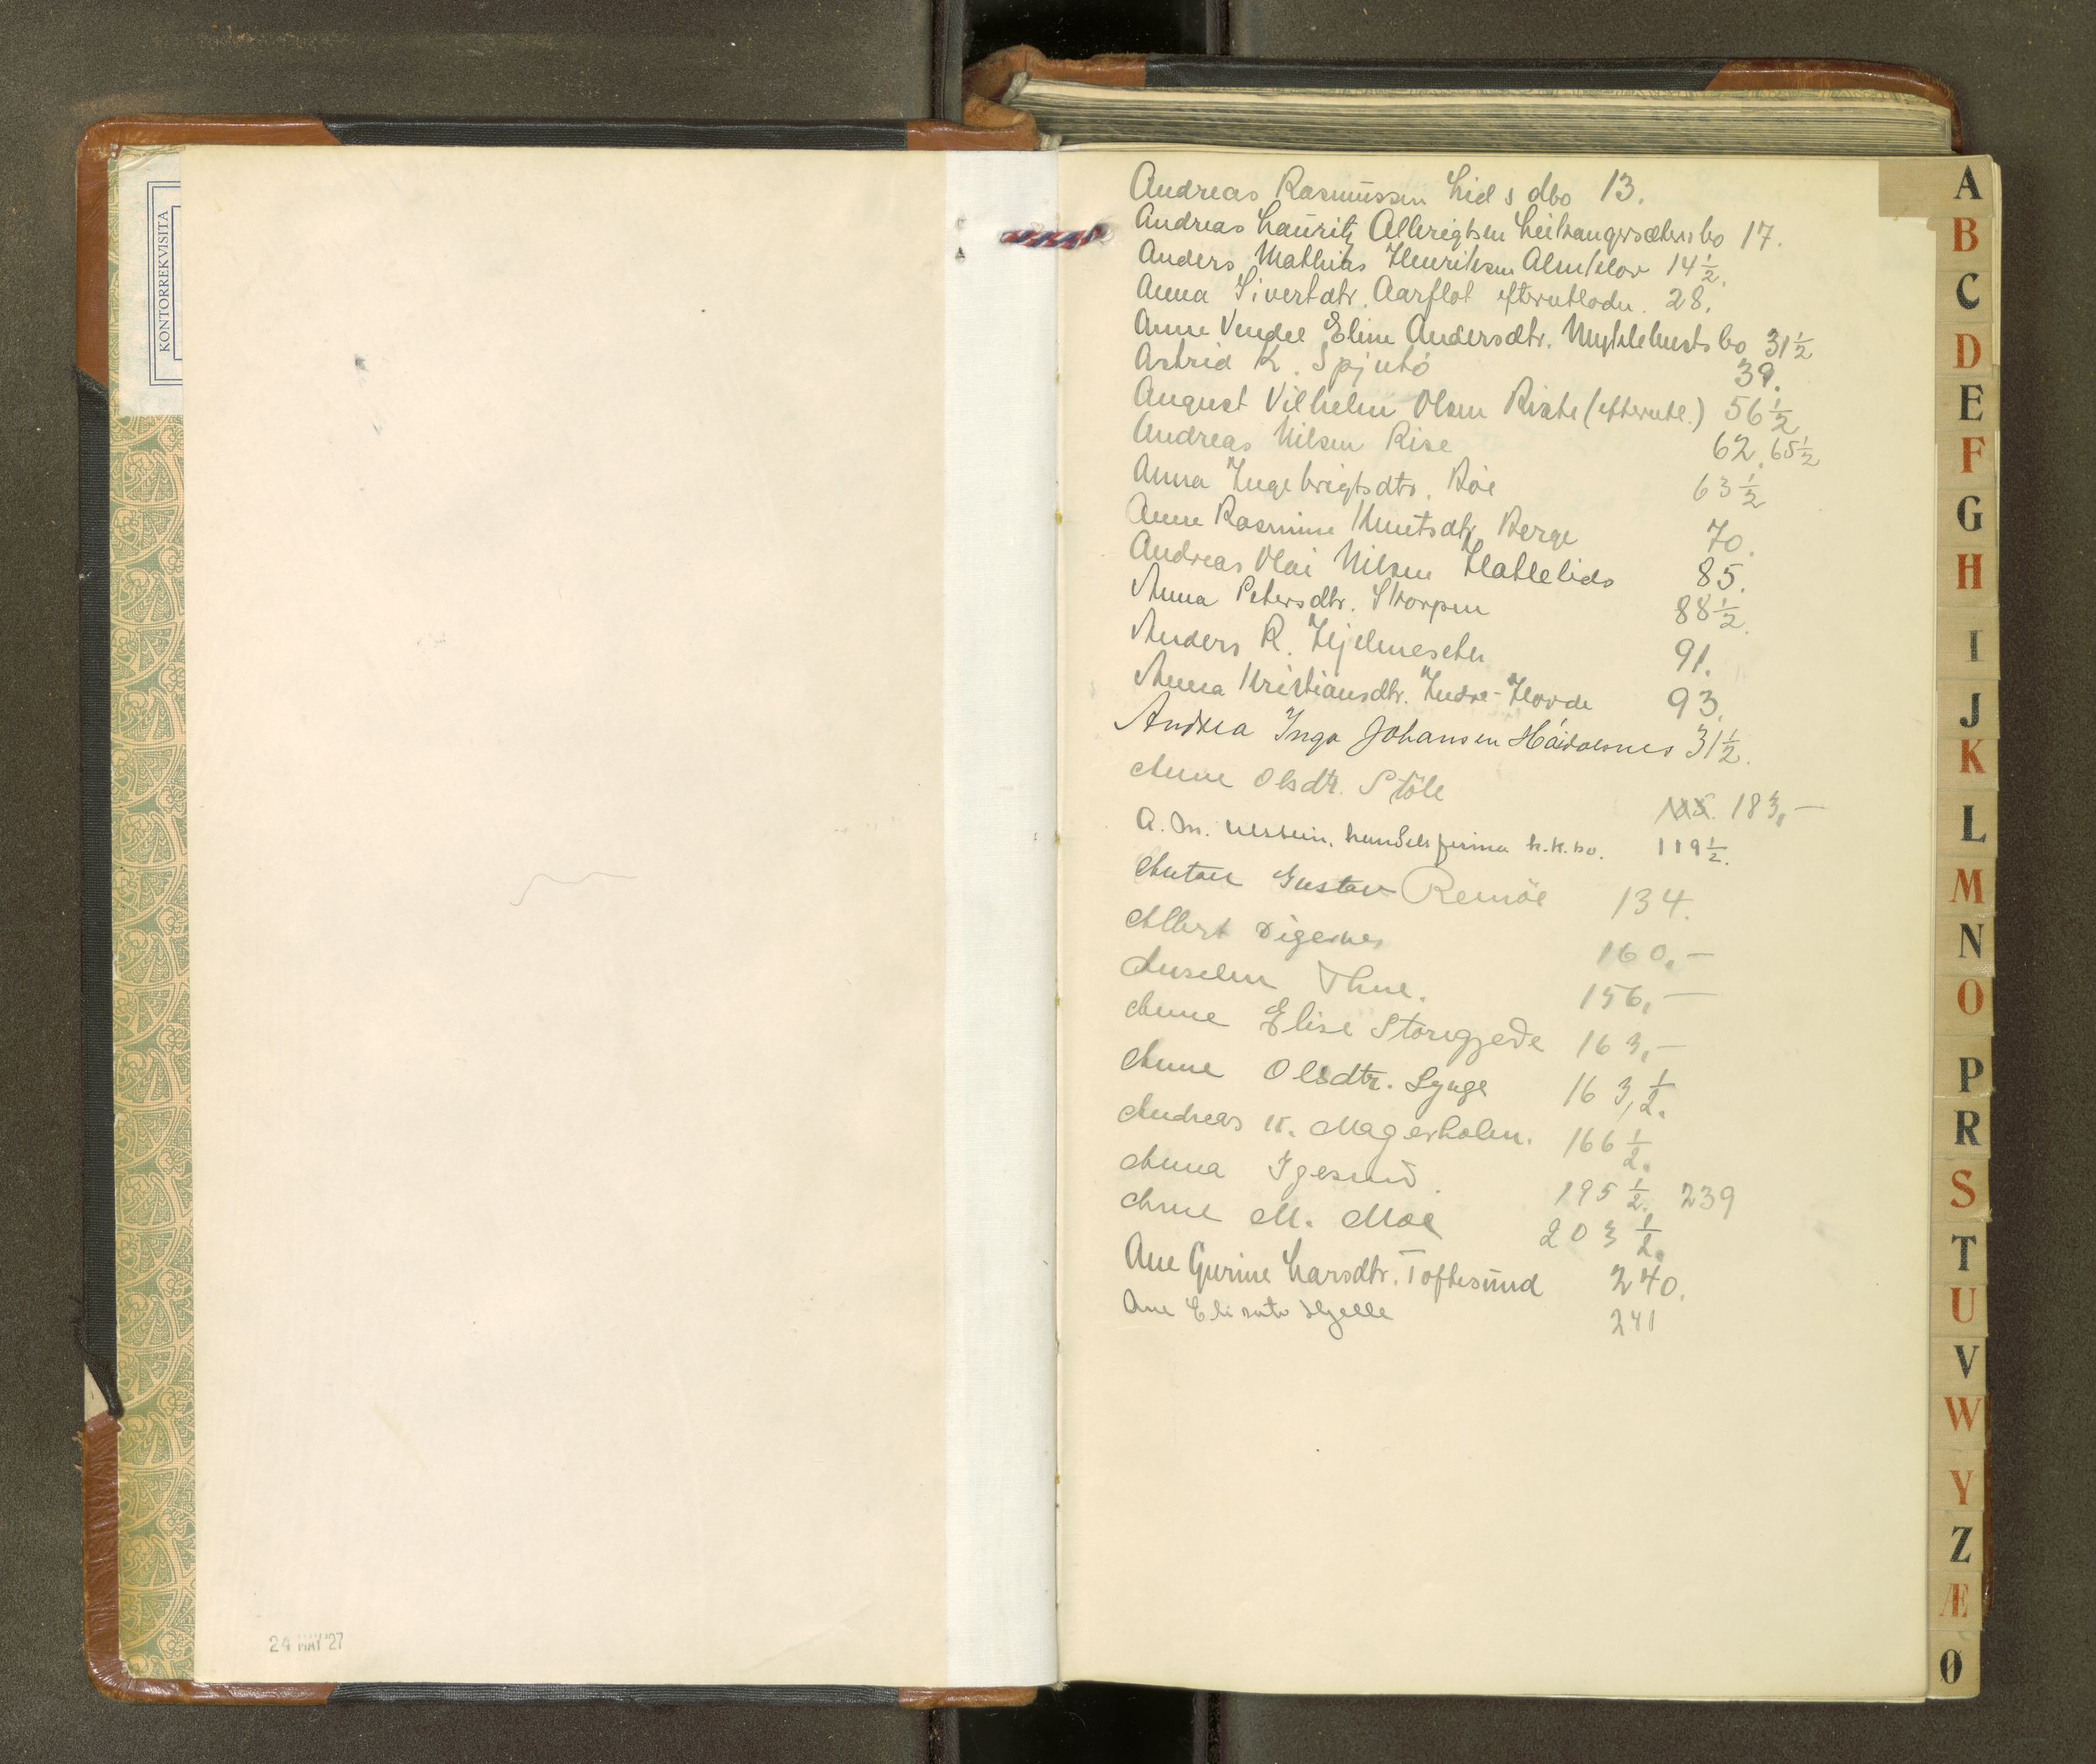 KONTORREKVISITA
24 MAY '27
Andreas Rasmussen Lids dbo 13.
Andreas Lauritz Albrigtsen Leikangersæters bo 17.
Anders Mathias Henriksen Almklov 14 1/2.
Anna Sivertdtr. Aarflot efterutlodn. 28.
Anne Vendel Eline Andersdtr. Myklebusts bo 31 1/2
Astrid K. Spjutø 39.
August Vilhelm Olsen Riste (efterutl.) 56 1/2
Andreas Nilsen Rise 62. 65 1/2
Anna Ingebrigtsdtr. Røe 63 1/2
Anne Rasmine Knutsdtr. Berge 70.
Andreas Olai Nilsen Hatlelids 85.
Anna Petersdtr. Skorpen 88 1/2.
Anders R. Hjelmeseter 91.
Anna Kristiansdtr. Indre-Hovde 93.
Andrea Inga Johansen 31 1/2.
Anne Olsdtr. Støle 183,-
A. M. handelsfirma k.k.bo. 119 1/2.
Anton Gustav Remöe 134.
Albert Digernes 160,-
Anselm Thue. 156,-
Anne Elise Storegjerde 163,-
Anne Olsdtr. Lynge 163, 1/2.
Andreas K. Magerholm. 166 1/2.
Anna Igesund. 195 1/2. 239
Arne M. Moe 203 1/2.
Ane Gurine Larsdtr. Toftesund 240.
Ane Hjelle 241
A
B
C
D
E
F
G
H
I
J
K
L
M
N
O
P
R
S
T
U
V
W
Y
Z
Æ
Ø